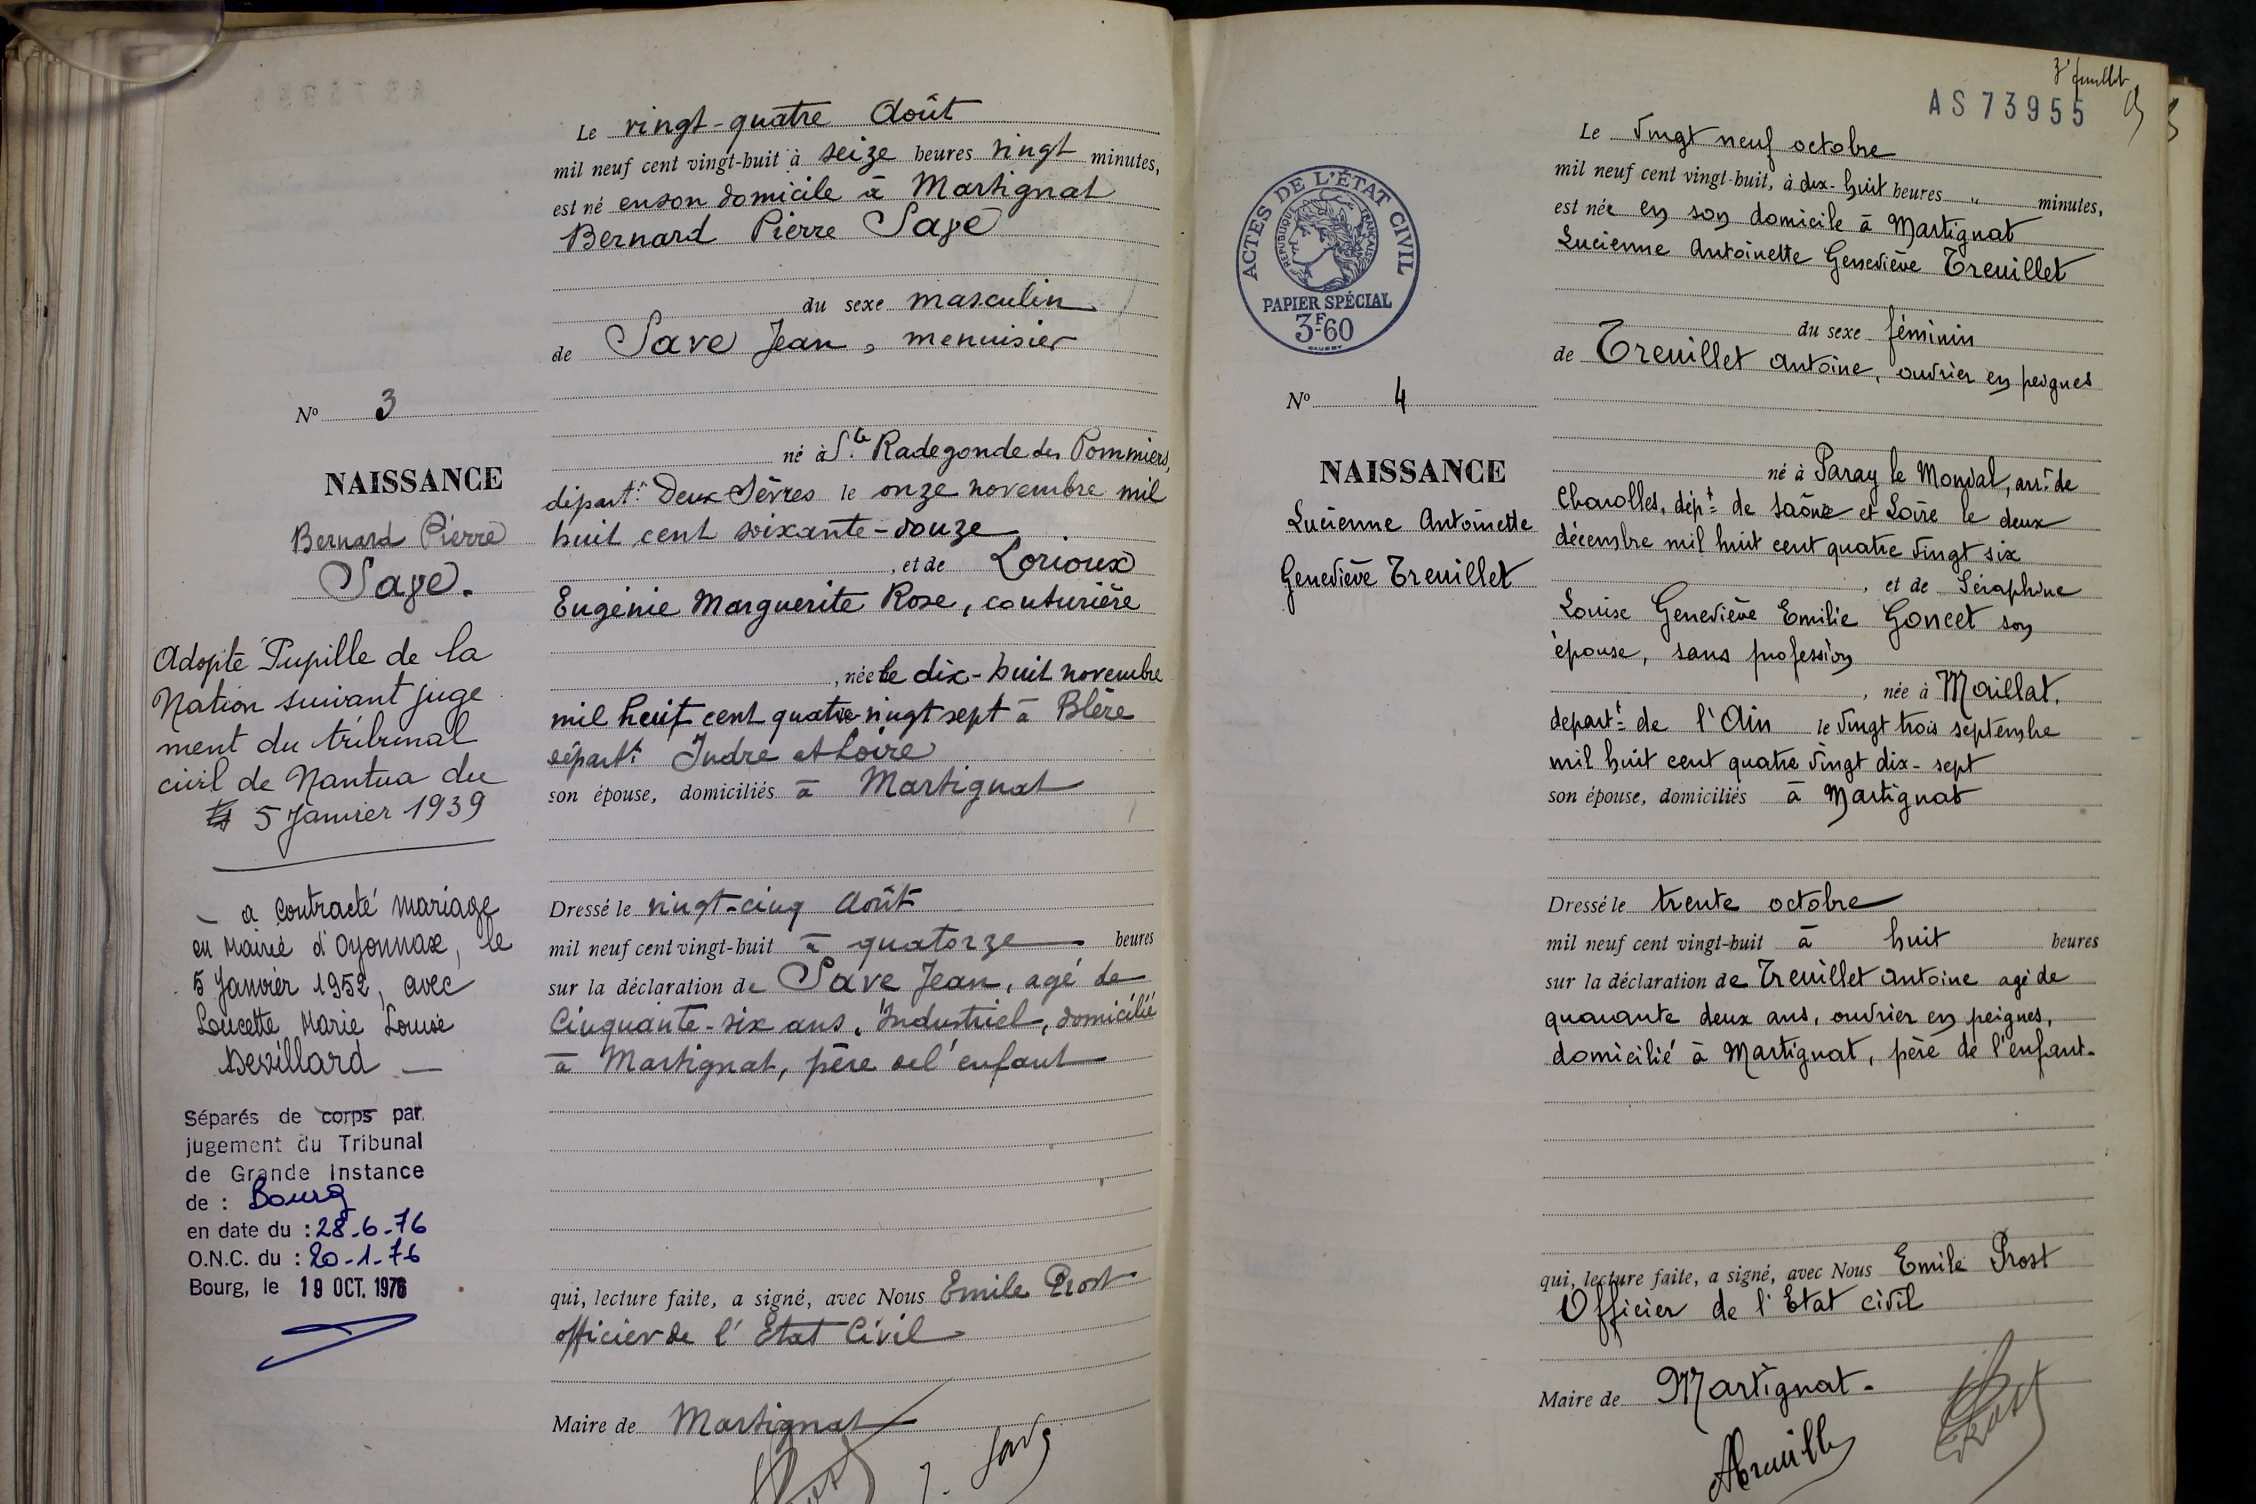 Le vingt-quatre Août
mil neuf cent vingt-huit à seize heures vingt minutes,
est né en son domicile à Martignat
Bernard Pierre Save
du sexe masculin
de Save Jean, menuisier
né à Ste Radegonde des Pommiers,
départt Deux Sèvres le onze novembre mil
huit cent soixante-douze
, et de Lorioux
Eugénie Marguerite Rose, couturière
, née le dix-huit novembre
mil huit cent quatre vingt sept à Bléré
départt Indre et Loire
son épouse, domiciliés à Martignat
Dressé le vingt-cinq Août
mil neuf cent vingt-huit à quatorze heures
sur la déclaration de Save Jean, agé de
Cinquante-six ans, Industriel, domicilié
à Martignat, père de l'enfant
qui, lecture faite, a signé, avec Nous Emile Prost
officier de l'Etat Civil
Maire de Martignat
J. Save
No 3
NAISSANCE
Bernard Pierre
Save.
Adopté Pupille de la
Nation suivant juge
ment du tribunal
civil de Nantua du
5 Janvier 1939
_ a contracté mariage
en Mairie d'Oyonnax, le
5 Janvier 1952, avec
Loucette Marie Louise
Devillard _
Séparés de corps par
jugement du Tribunal
de Grande Instance
de : Bourg
en date du : 28-6-76
O.N.C. du : 20-1-76
Bourg, le 19 OCT. 1976
3e feuillet
AS 73955
ACTES DE L'ÉTAT CIVIL
RÉPUBLIQUE FRANÇAISE
PAPIER SPÉCIAL
3F60
No 4
NAISSANCE
Lucienne Antoinette
Geneviève Treuillet
Le vingt neuf octobre
mil neuf cent vingt-huit, à dix-huit heures " minutes,
est née en son domicile à Martignat
Lucienne Antoinette Geneviève Treuillet
du sexe féminin
de Treuillet Antoine, ouvrier en peignes
né à Paray le Monial, arrt de
Charolles, dépt de Saône et Loire le deux
décembre mil huit cent quatre vingt six
, et de Séraphine
Louise Geneviève Emilie Goncet son
épouse, sans profession
, née à Maillat,
départt de l'Ain le vingt trois septembre
mil huit cent quatre vingt dix-sept
son épouse, domiciliés à Martignat
Dressé le trente octobre
mil neuf cent vingt-huit à huit heures
sur la déclaration de Treuillet Antoine agé de
quarante deux ans, ouvrier en peignes,
domicilié à Martignat, père de l'enfant.
qui, lecture faite, a signé, avec Nous Emile Prost
Officier de l'Etat civil
Maire de Martignat.
ATreuillet
Prost